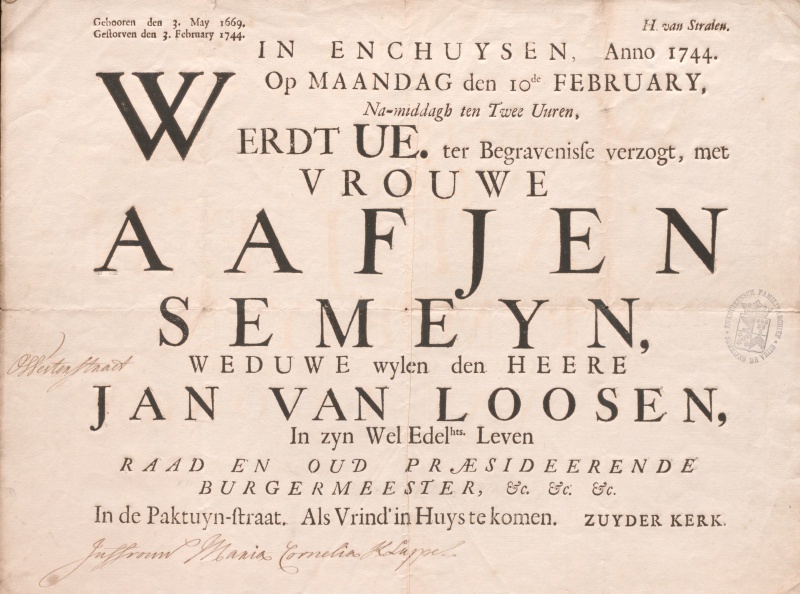 Gebooren den 3. May 1669.
Gestorven den 3. February 1744.
H. van Stralen.
IN ENCHUYSEN, Anno 1744.
Op MAANDAG den 10de FEBRUARY,
Na-middagh ten Twee Uuren,
WERDT UE. ter Begravenisse verzogt, met
VROUWE
AAFJEN
SEMEYN,
WEDUWE wylen den HEERE
JAN VAN LOOSEN,
In zyn Wel Edelhts. Leven
RAAD EN OUD PRÆSIDEERENDE
BURGERMEESTER, &c. &c. &c.
In de Paktuyn-straat. Als Vrind' in Huys te komen. ZUYDER KERK.
Westerstraat
Juffrouw Maria Cornelia